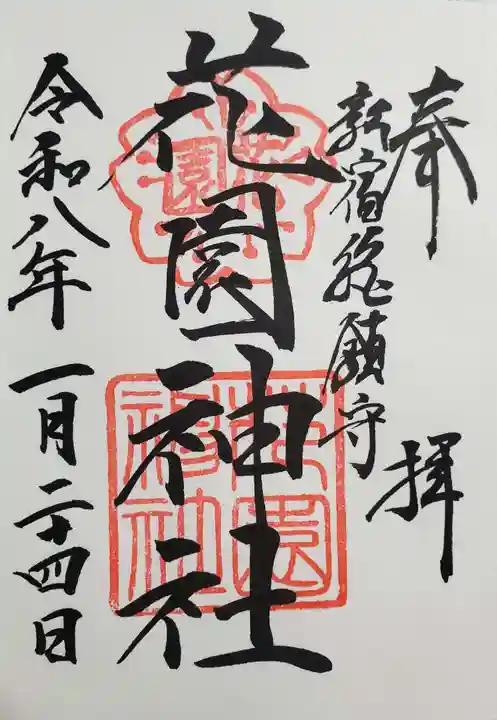 奉拝
新宿総鎮守
花園神社
令和八年一月二十四日
花園
花園
神社